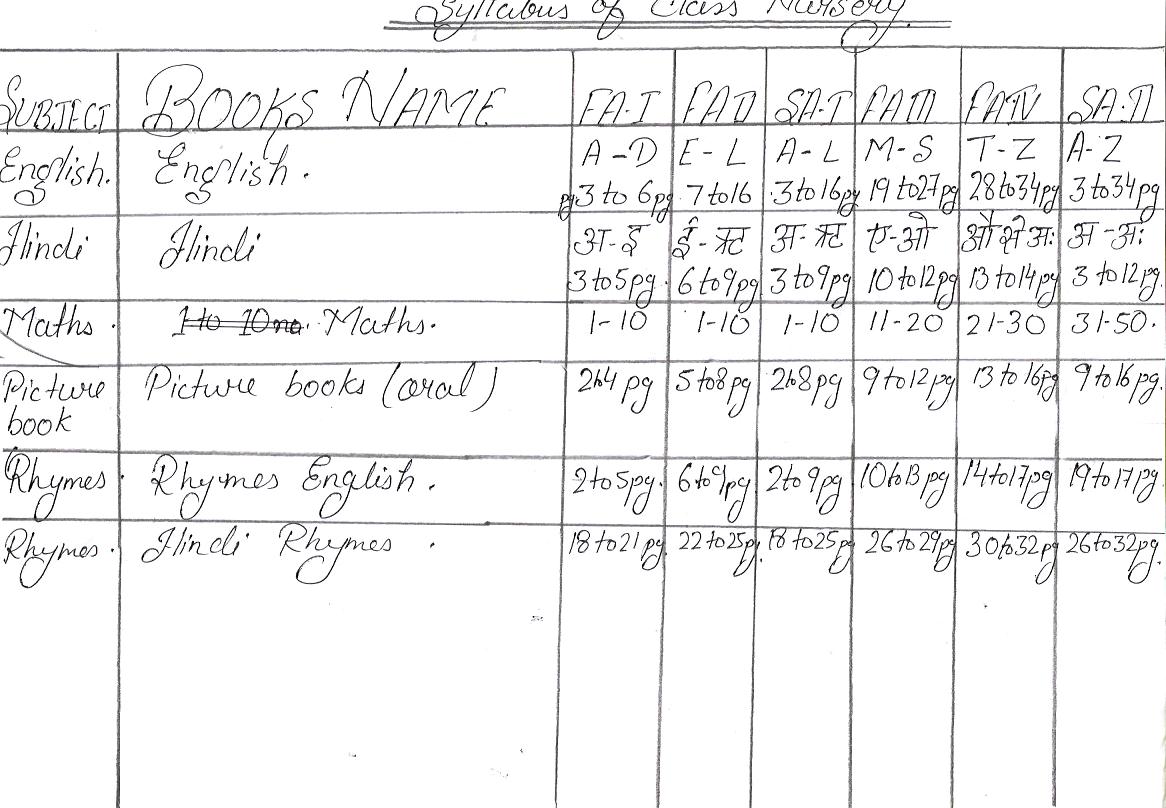 Syllabus of Class Nursery.
SUBJECT BOOKS NAME FA-I FA II SA-I FA III FA IV SA-II
English. English. A-D E-L A-L M-S T-Z A-Z
pg3 to 6pg 7 to 16 3 to 16pg 19 to 27pg 28 to 34pg 3 to 34pg
Hindi Hindi अ-इ ई-ऋ अ-ऋ ए-ओ औ से अः अ-अः
3 to 5pg. 6 to 9pg 3 to 9pg 10 to 12pg 13 to 14pg 3 to 12pg.
Maths. 1 to 10no. Maths. 1-10 1-10 1-10 11-20 21-30 31-50.
Picture Picture books (oral) 2to4 pg 5 to 8pg 2to8pg 9 to 12pg 13 to 16pg 9 to 16pg.
book
Rhymes. Rhymes English. 2 to 5pg. 6 to 9pg 2 to 9pg 10 to 13 pg 14 to 17pg 19 to 17pg
Rhymes. Hindi Rhymes. 18 to 21 pg. 22 to 25pg. 18 to 25pg 26 to 29pg 30 to 32pg 26 to 32pg.